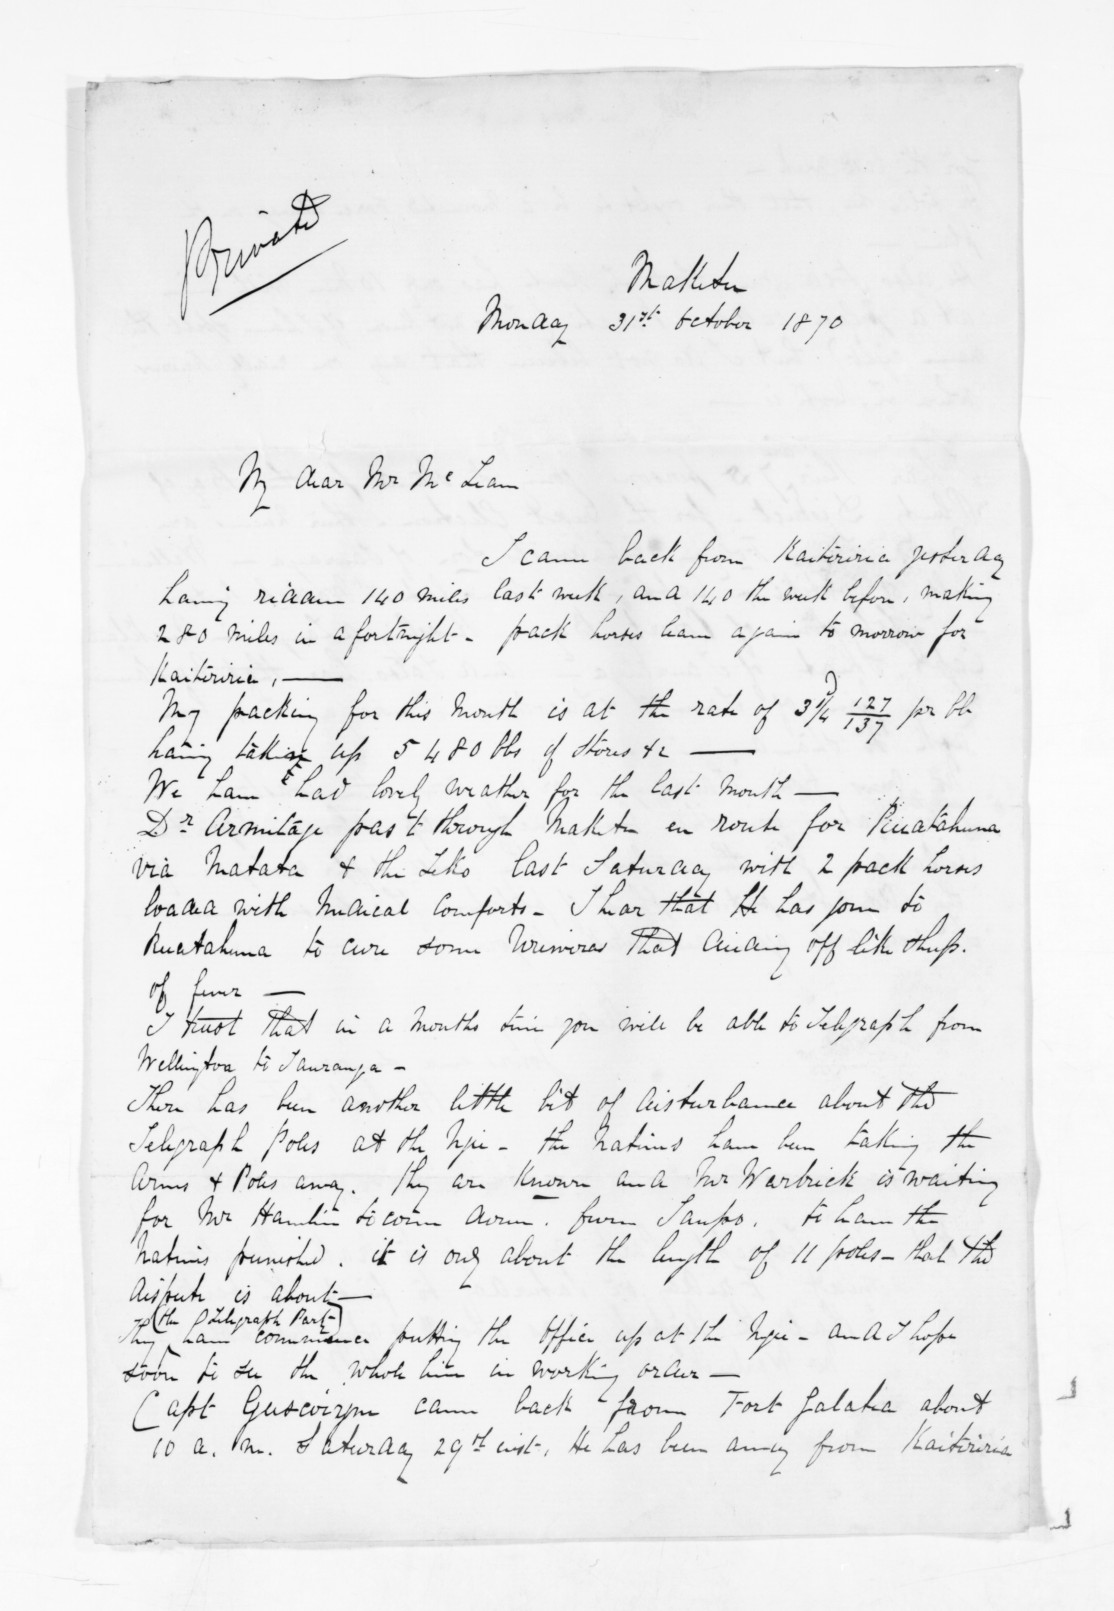 Private
Maketu
Monday 31st October 1870
My dear Mr McLean
I came back from Kaiteriria yesterday
having ridden 140 miles last week, and 140 the week before, making
280 miles in a fortnight - pack horses leave again to morrow for
Kaiteriria, —
My packing for this month is at the rate of 3 1/4 127/137 pr lb
having taken up 5480 lbs of stores &c —
We have had lovely weather for the last month —
Dr Armitage pas't through Maketu en route for Ruatahuna
via Matata & the Teko last Saturday with 2 pack horses
loaded with Medical Comforts - I hear that He has gone to
Ruatahuna to cure some Uriweras that dieing off like sheep.
of fever —
I trust that in a months time you will be able to Telegraph from
Wellington to Tauranga -
There has been another little bit of disturbance about the
Telegraph Poles at the Ngae - the natives have been taking the
Arms & Poles away. they are known and Mr Warbrick is waiting
for Mr Hamlin to come down. from Taupo. to have the
Natives punished. it is only about the length of 11 poles - that the
dispute is about —
(the Telegraph Party)
They have commence putting the office up at the Ngae - and I hope
soon to see the whole line in working order —
Capt Gascoigne came back from Fort Galatea about
10 a. m. Saturday 29th inst. He has been away from Kaiteriria